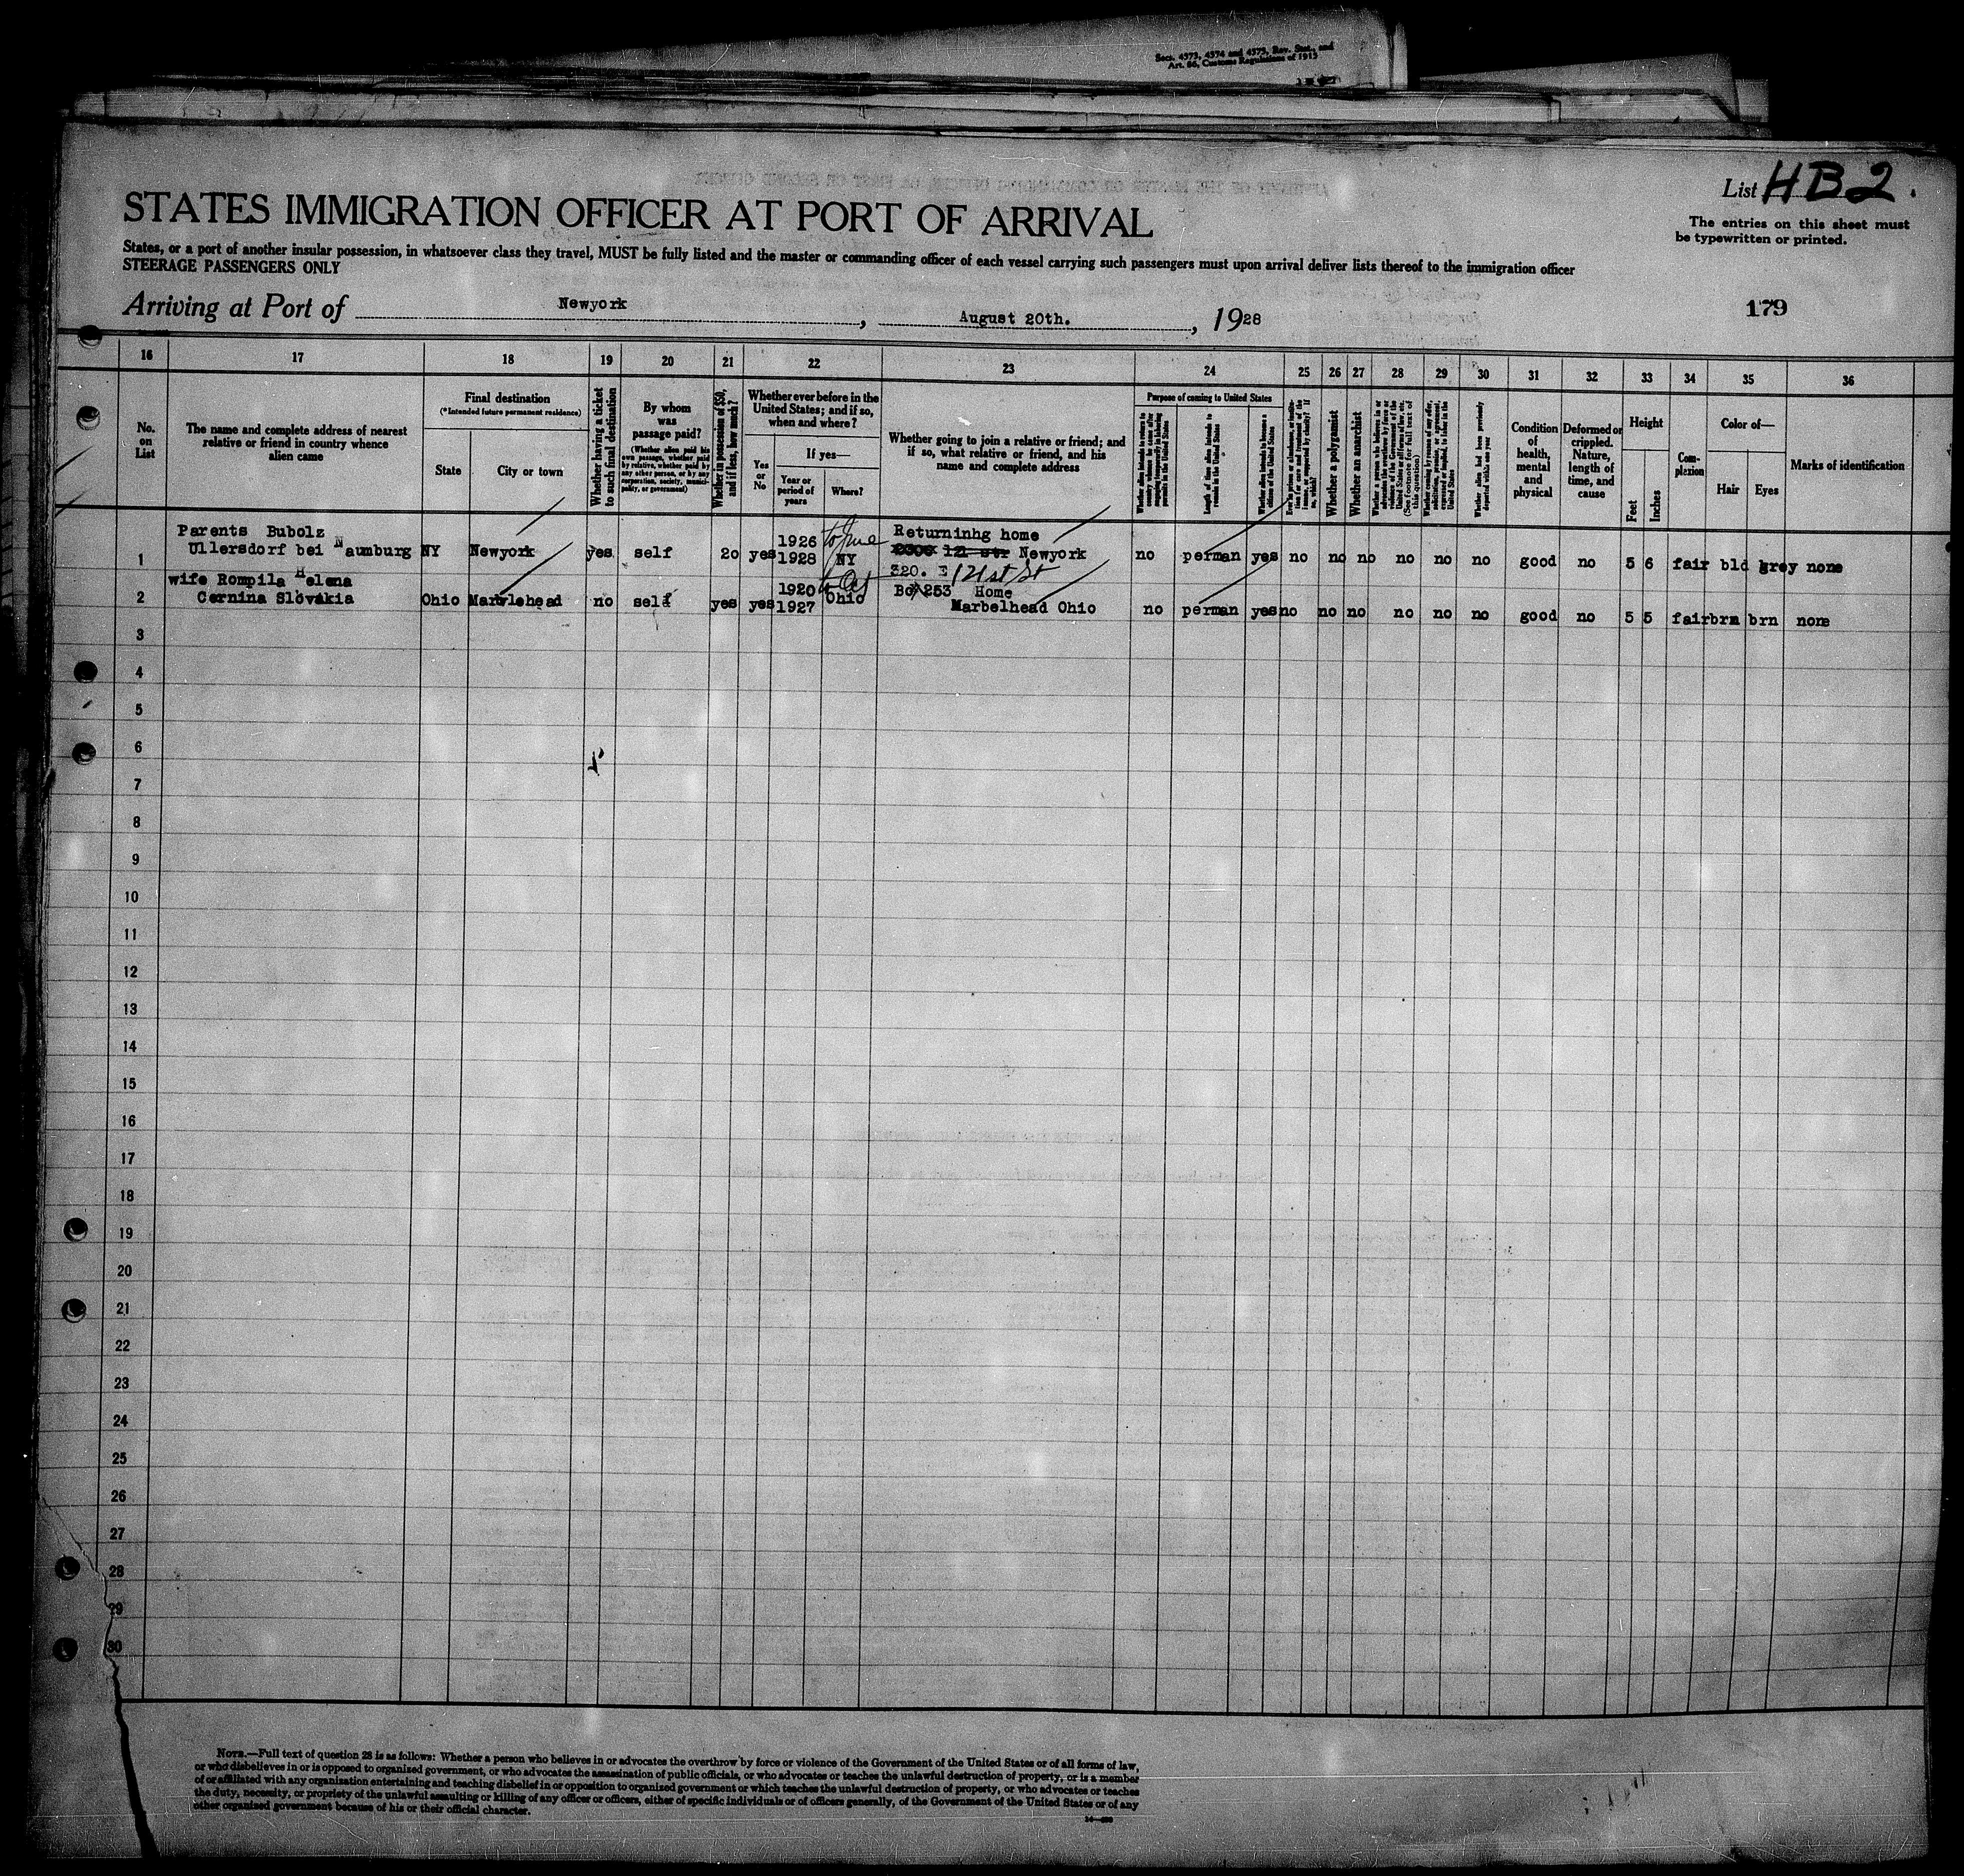 Secs. 4373, 4374 and 4375, Rev. Stat., and
Art. 86, Customs Regulations of 1915
List HB2.
STATES IMMIGRATION OFFICER AT PORT OF ARRIVAL
The entries on this sheet must
be typewritten or printed.
States, or a port of another insular possession, in whatsoever class they travel, MUST be fully listed and the master or commanding officer of each vessel carrying such passengers must upon arrival deliver lists thereof to the immigration officer
STEERAGE PASSENGERS ONLY
Arriving at Port of Newyork, August 20th., 1928
179
16 17 18 19 20 21 22 23 24 25 26 27 28 29 30 31 32 33 34 35 36
No. on List
The name and complete address of nearest
relative or friend in country whence
alien came
Final destination
(*Intended future permanent residence)
State
City or town
Whether having a ticket
to such final destination
By whom
was
passage paid?
(Whether alien paid his
own passage, whether paid
by relative, whether paid by
any other person, or by any
corporation, society, munici-
pality, or government)
Whether in possession of $50,
and if less, how much?
Whether ever before in the
United States; and if so,
when and where?
Yes
or
No
If yes—
Year or
period of
years
Where?
Whether going to join a relative or friend; and
if so, what relative or friend, and his
name and complete address
Purpose of coming to United States
Length of time alien intends to
remain in the United States
Whether alien intends to become a
citizen of the United States
Whether a polygamist
Whether an anarchist
Whether alien had been previously
deported within one year
Condition
of
health,
mental
and
physical
Deformed or
crippled.
Nature,
length of
time, and
cause
Height
Feet
Inches
Com-
plexion
Color of—
Hair
Eyes
Marks of identification
1 Parents Bubolz
Ullersdorf bei Naumburg NY Newyork yes self 20 yes 1926 1928 NY Returninhg home
Newyork
320. E 121st St
no perman yes no no no no no no good no 5 6 fair bld grey none
2 wife Rompila Helena
Cernina Slovakia Ohio Marblehead no self yes yes 1920 1927 Ohio Box 253 Home
Marbelhead Ohio no perman yes no no no no no no good no 5 5 fair brn brn none
3
4
5
6
7
8
9
10
11
12
13
14
15
16
17
18
19
20
21
22
23
24
25
26
27
28
29
30
NOTE.—Full text of question 28 is as follows: Whether a person who believes in or advocates the overthrow by force or violence of the Government of the United States or of all forms of law,
or who disbelieves in or is opposed to organized government, or who advocates the assassination of public officials, or who advocates or teaches the unlawful destruction of property, or is a member
of or affiliated with any organization entertaining and teaching disbelief in or opposition to organized government or which teaches the unlawful destruction of property, or who advocates or teaches
the duty, necessity, or propriety of the unlawful assaulting or killing of any officer or officers, either of specific individuals or of officers generally, of the Government of the United States or of any
other organized government because of his or their official character.